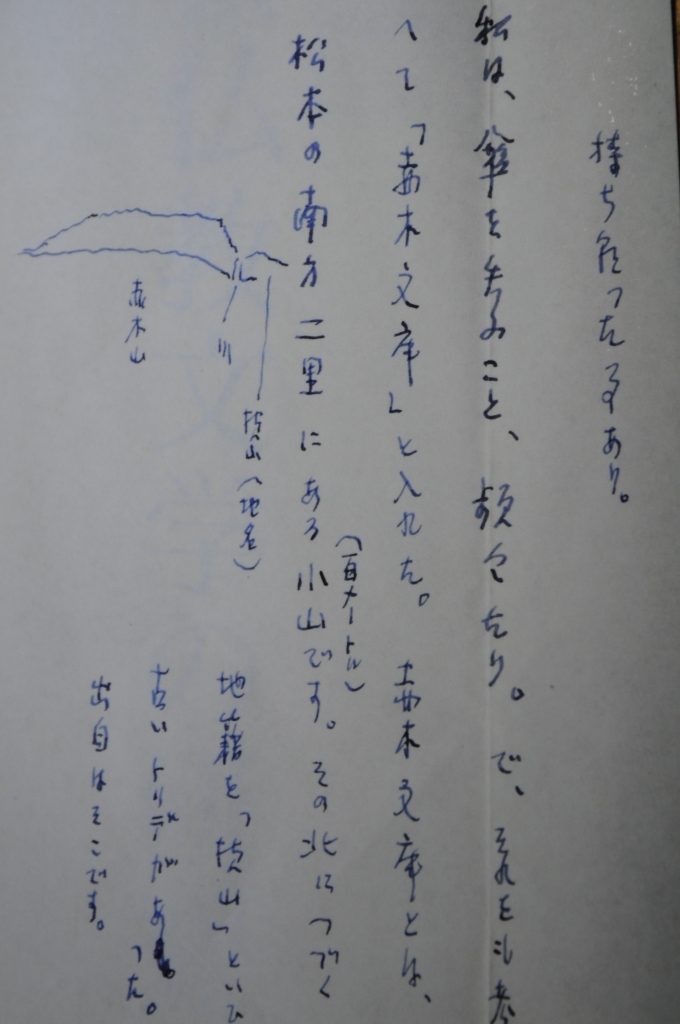 持ち行ったる事あり。
私は、傘を失ふこと、頻々たり。で、それをも考
へて「赤木文庫」と入れた。赤木文庫とは、
(百メートル)
松本の南方二里にある小山です。その北につづく
地籍を、「城山」といひ
古いトリデがあった。
出自はそこです。
城山(地名)
川
赤木山